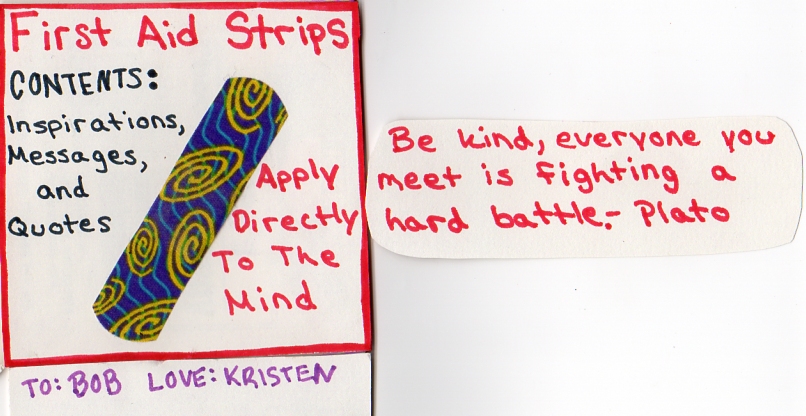 First Aid Strips
CONTENTS:
Inspirations,
Messages,
and
Quotes
Apply
Directly
To The
Mind
TO: BOB LOVE: KRISTEN
Be kind, everyone you
meet is fighting a
hard battle.- Plato